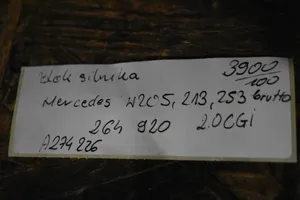 Blok silnika 3900/100
Mercedes W205, 213, 253 brutto
264 920 2.0CGI
A274226